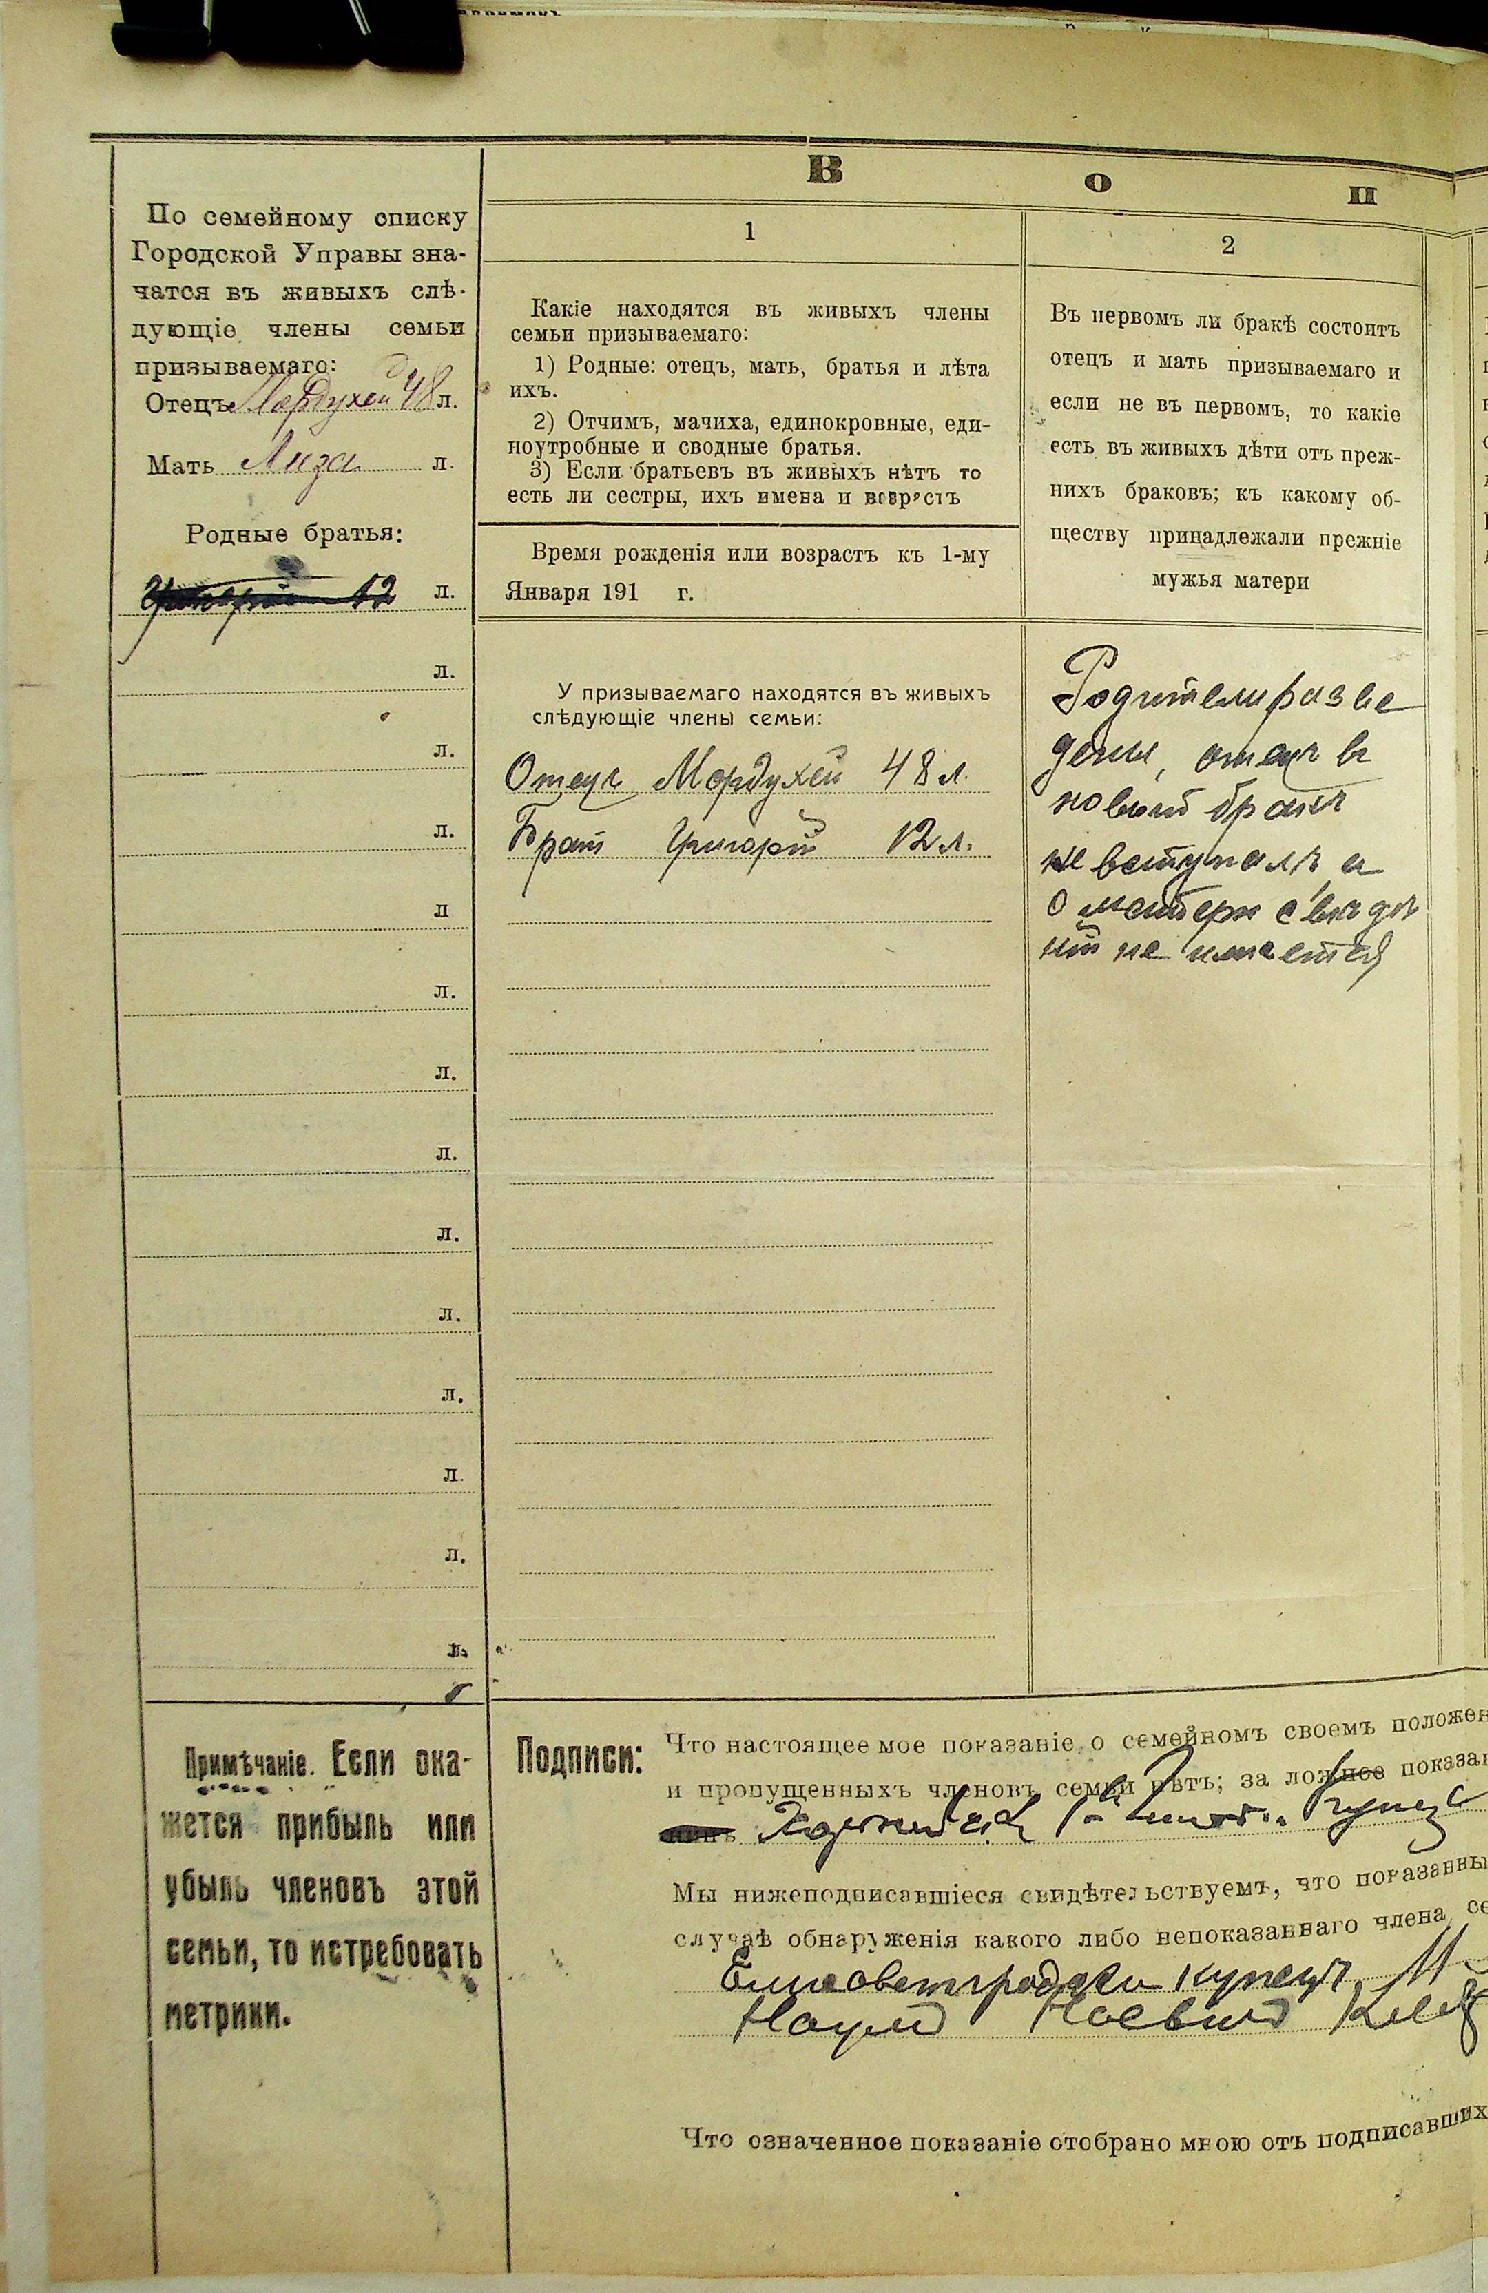 В о п
По семейному списку
Городской Управы зна-
чатся въ живыхъ слѣ-
дующіе члены семьи
призываемаго:
Отецъ Мордухей 48 л.
Мать Лиза л.
Родные братья:
Григорій 12 л.
л.
л.
л.
л
л.
л.
л.
л.
л.
л.
л.
л.
л.
1
Какіе находятся въ живыхъ члены
семьи призываемаго:
1) Родные: отецъ, мать, братья и лѣта
ихъ.
2) Отчимъ, мачиха, единокровные, еди-
ноутробные и сводные братья.
3) Если братьевъ въ живыхъ нѣтъ то
есть ли сестры, ихъ имена и возрастъ
Время рожденія или возрастъ къ 1-му
Января 191 г.
У призываемаго находятся въ живыхъ
слѣдующіе члены семьи:
Отецъ Мордухей 48 л.
Братъ Григорій 12 л.
2
Въ первомъ ли бракѣ состоитъ
отецъ и мать призываемаго и
если не въ первомъ, то какіе
есть въ живыхъ дѣти отъ преж-
нихъ браковъ; къ какому об-
ществу принадлежали прежніе
мужья матери
Родители разве
дены, отецъ въ
новый бракъ
не вступалъ а
о матери свѣдѣ
ній не имѣется
Примѣчаніе. Если ока-
жется прибыль или
убыль членовъ этой
семьи, то истребовать
метрики.
Подписи:
Что настоящее мое показаніе о семейномъ своемъ положен
и пропущенныхъ членовъ семьи нѣтъ; за ложное показан
купец
Мы нижеподписавшіеся свидѣтельствуемъ, что показанны
случаѣ обнаруженія какого либо непоказаннаго члена се
Елисаветградскій купецъ М
Наумъ
Что означенное показаніе отобрано мною отъ подписавшихъ